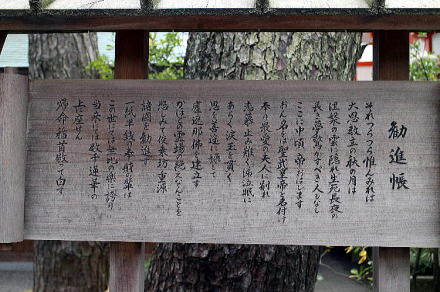 勧進帳
それつらつら惟んみれば
大恩教主の秋の月は
涅槃の雲に隠れ生死長夜の
長き夢驚かすべき人もなし
ここに中頃帝おはします
おん名をば聖武皇帝と名付け
最愛の夫人に別れ
恋慕止み難く涕泣眼に
あらく
思を善途に翻して
盧遮那佛を建立す
かほどの霊場の絶えなんことを
悲しみて俊乗坊重源
諸国を勧進す
一紙半銭の奉財の輩は
この世にては無比の楽に誇り
当来にては数千蓮華の
上に座せん
帰命稽首敬って白す